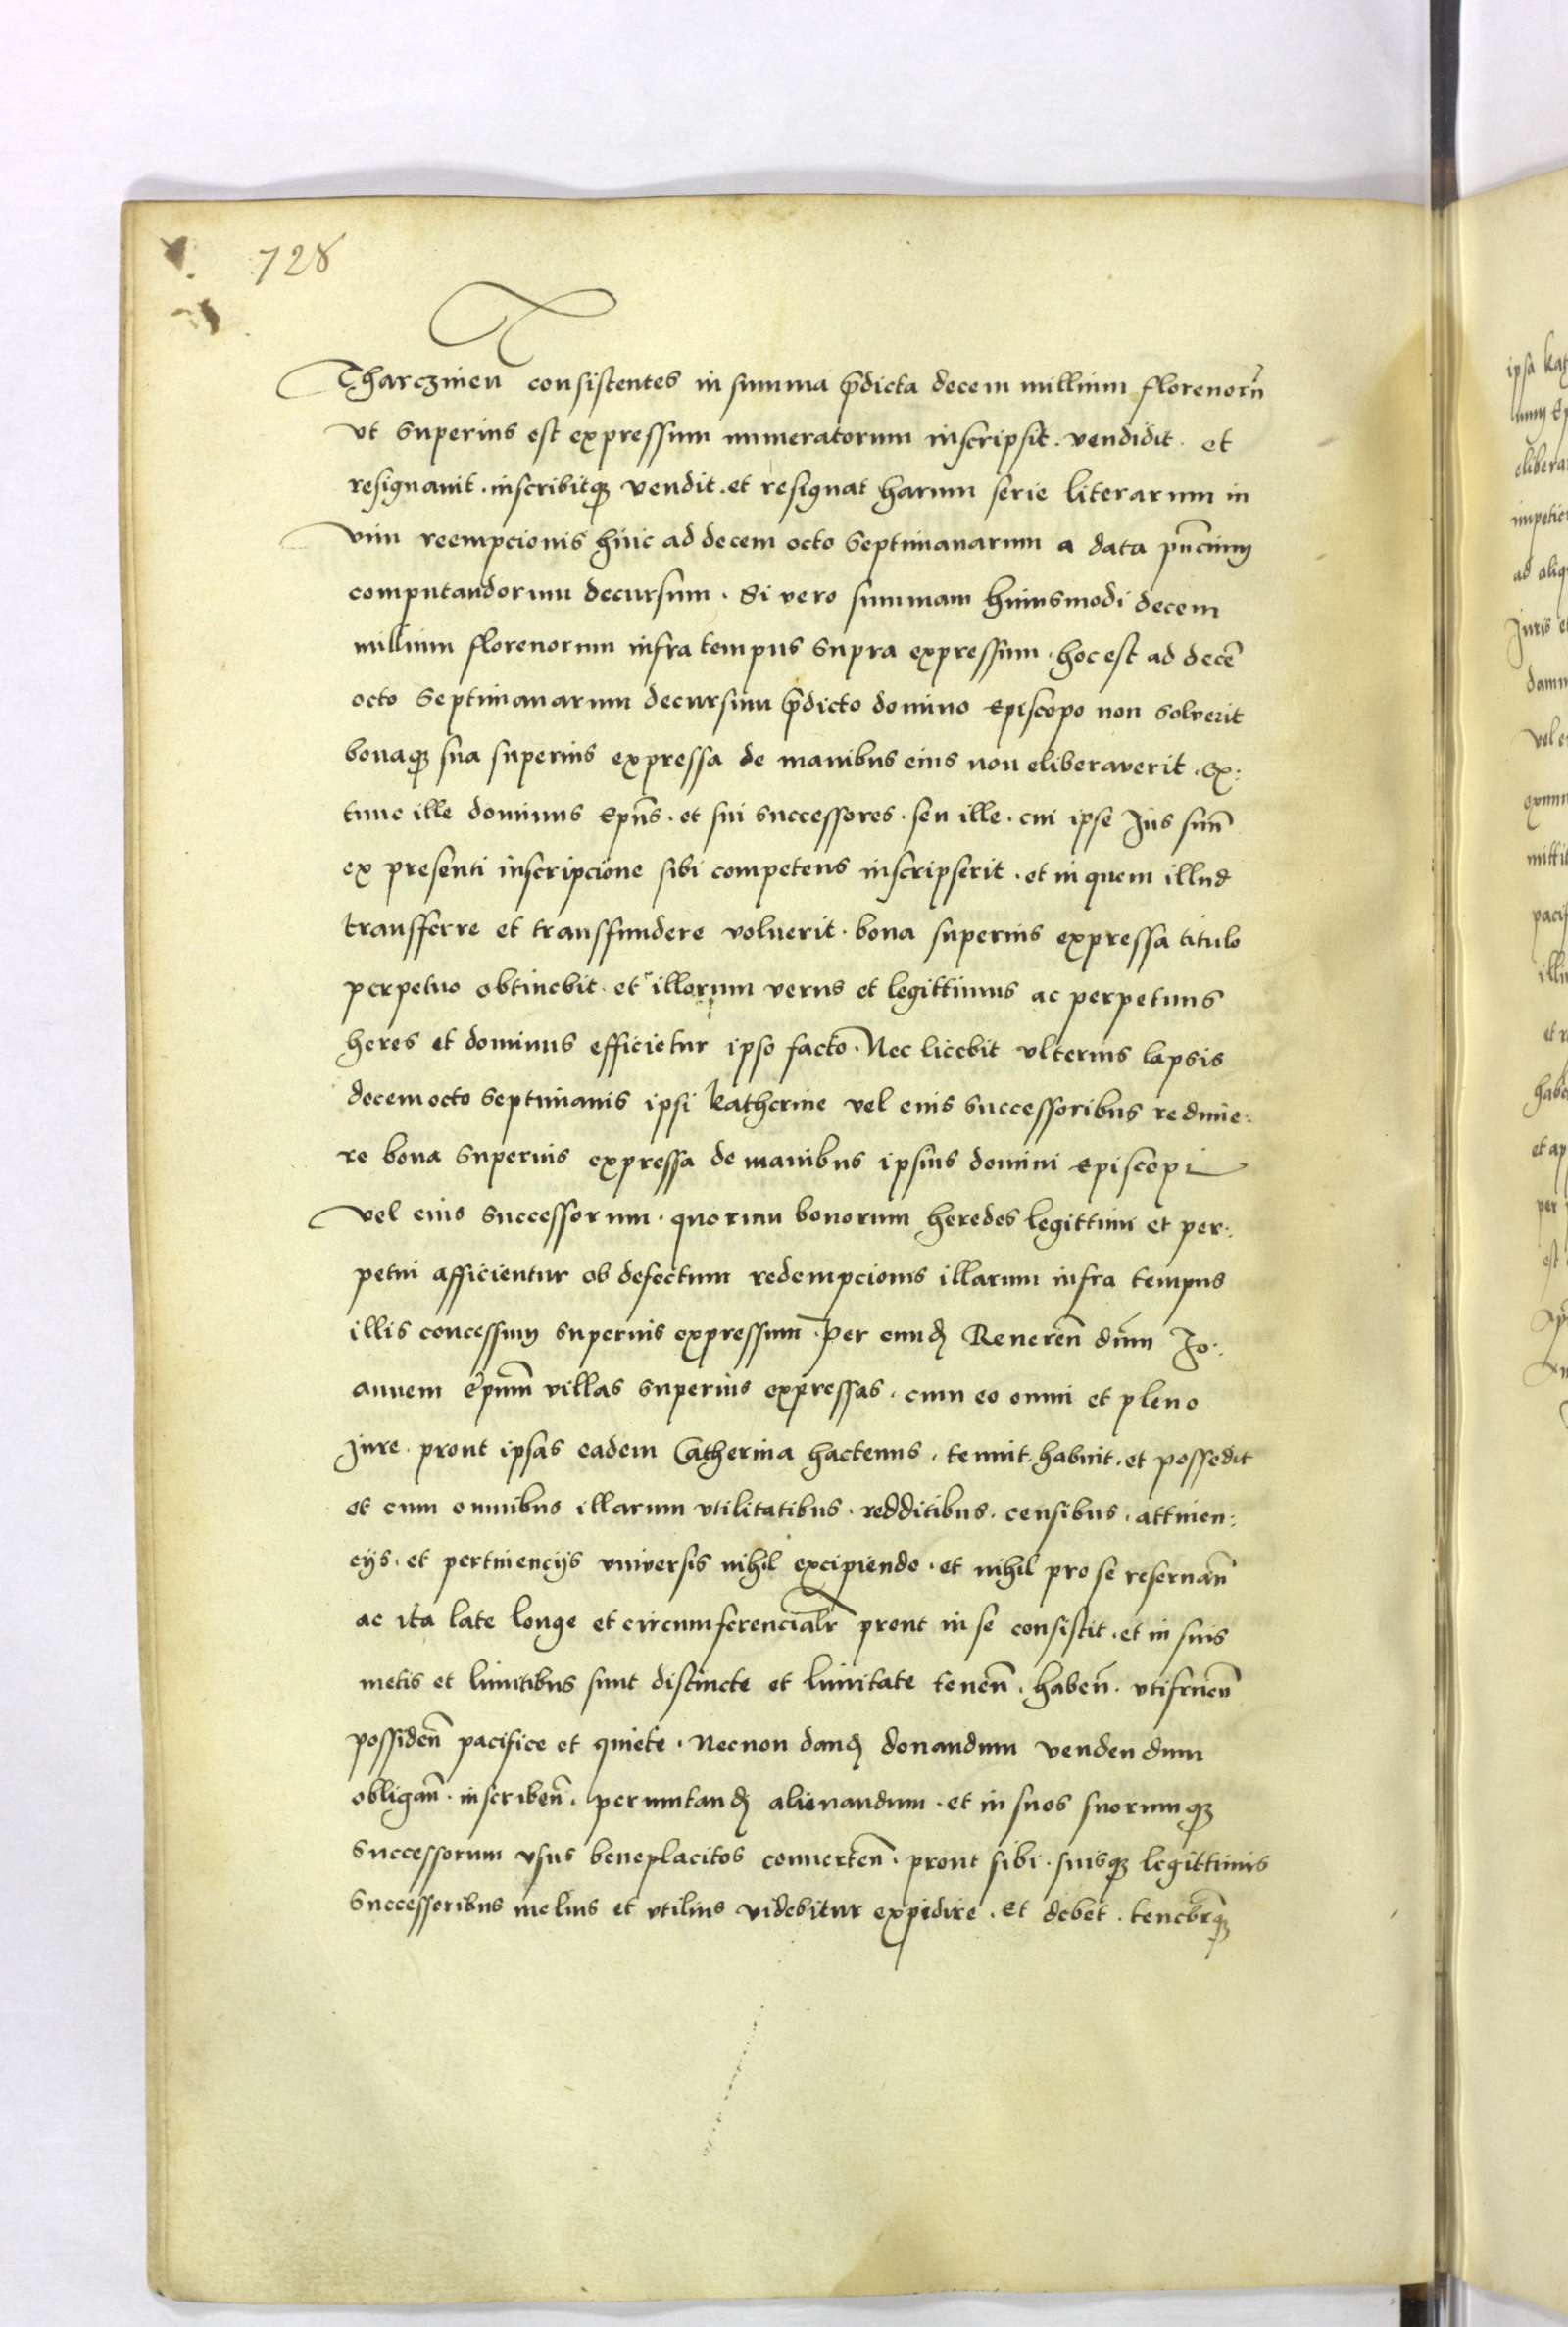 728
Tharczinen consistentes in summa p̃dicta decem millium florenorũ
vt superius est expressum numeratorum inscripsit. vendidit. et
resignauit. inscribitqꝫ vendit. et resignat harum serie literarum in
vim reempcionis hinc ad decem octo septimanarum a data p̃ncium
computandorum decursum. Si vero summam huiusmodi decem
millium florenorum infra tempus supra expressum. hoc est ad decẽ
octo septimanarum decursum p̃dicto domino Episcopo non solverit
bonaqꝫ sua superius expressa de manibus eius non eliberaverit. Ex:
tunc ille dominus Epũs. et sui successores. seu ille. cui ipse Jus suũ
ex presenti inscripcione sibi competens inscripserit. et in quem illud
transferre et transfundere voluerit. bona superius expressa titulo
perpetuo obtinebit. et illorum verus et legittimus ac perpetuus
heres et dominus efficietur ipso facto. Nec licebit vlterius lapsis
decem octo septimanis ipsi Katherine vel eius successoribus redime:
re bona superius expressa de manibus ipsius domini Episcopi
vel eius successorum. quorum bonorum heredes legittimi et per:
petui afficientur ob defectum redempcionis illarum infra tempus
illis concessum superius expressum. per eund Reuereñ dñm Jo:
annem Epũm villas superius expressas. cum eo omni et pleno
Jure. prout ipsas eadem Catherina hactenus. tenuit. habuit. et possedit
et cum omnibus illarum vtilitatibus. redditibus. censibus. attinen:
cijs. et pertinencijs vniversis nihil excipiendo. et nihil pro se reseruañ
ac ita late longe et circumferencialr̃ prout in se consistit. et in suis
metis et limitibus sunt distincte et limitate teneñ. habeñ. vtifrueñ
possideñ pacifice et quiete. Necnon dand donandum vendendum
obligañ. inscribeñ. permutand alienandum. et in suos suorumqꝫ
successorum vsus beneplacitos conuerteñ. prout sibi. suisqꝫ legittimis
successoribus melius et vtilius videbitur expedire. Et debet. tenebr̃qꝫ